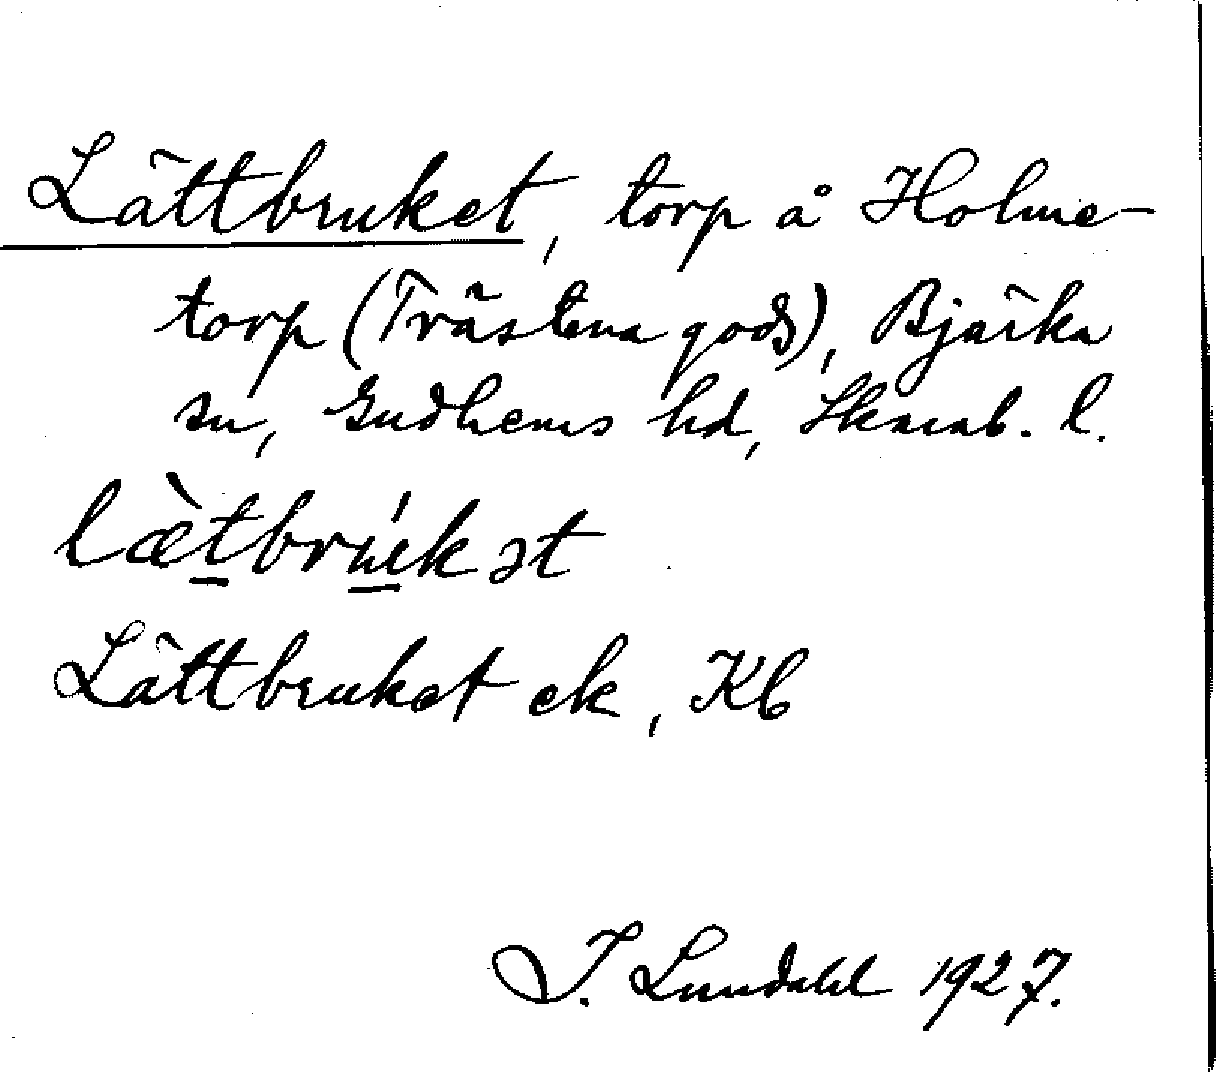 Lättbruket, torp å Holme-
torp (Trästena gods), Bjärka
sn, Gudhems hd, Skarab. l.
læ̀tbrúkət
Lättbruket ek, Kb
I. Lundahl 1927.